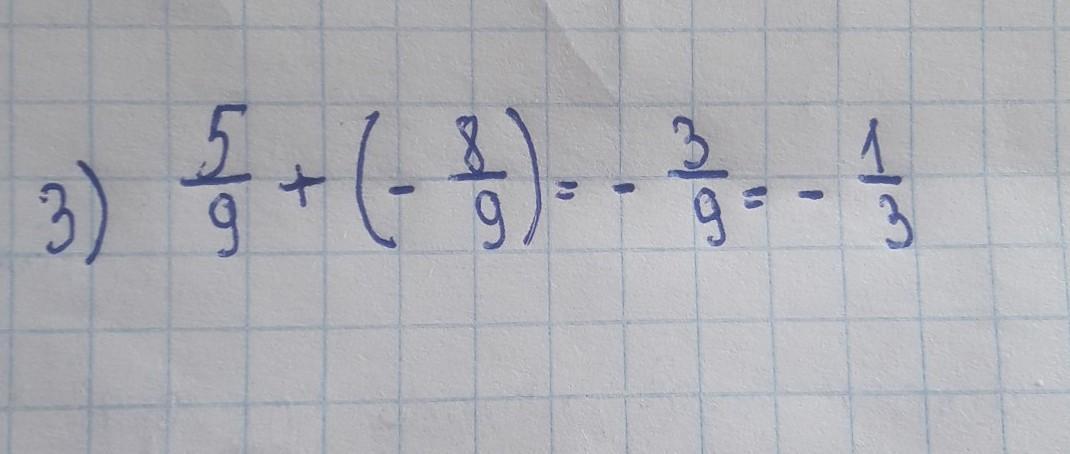 3) 5/9 + (- 8/9) = - 3/9 = - 1/3